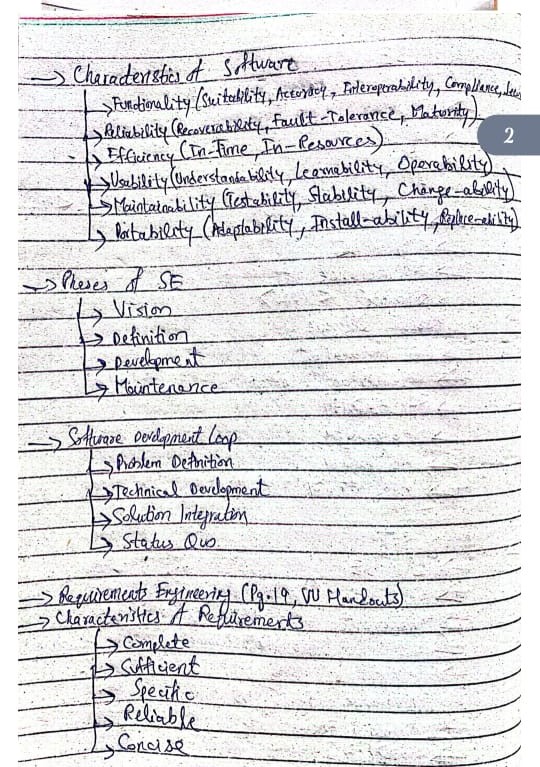 → Characteristics of Software
→ Functionality (Suitability, Accuracy, Interoperability, Compliance,
→ Reliability (Recoverability, Fault-Tolerance, Maturity)
2
→ Efficiency (In-Time, In-Resources)
→ Usability (Understandability, Learnability, Operability)
→ Maintainability (Testability, Stability, Change-ability)
→ Portability (Adaptability, Install-ability, Replace-ability)
→ Pheses of SE
→ Vision
→ Definition
→ Development
→ Maintenance
→ Software Development Loop
→ Problem Definition
→ Technical Development
→ Solution Integration
→ Status Quo
→ Requirements Engineering (Pg.19, VU Handouts)
→ Characteristics of Requirements
→ Complete
→ Sufficient
→ Specific
→ Reliable
→ Concise